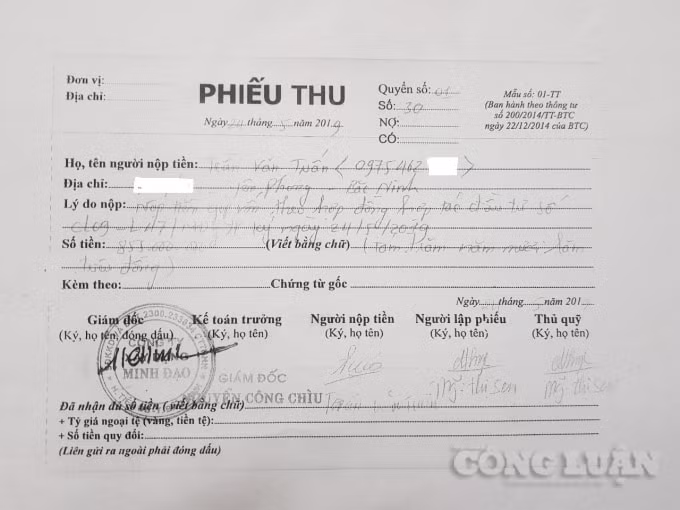 Đơn vị:
Địa chỉ:
PHIẾU THU
Ngày 24 tháng 5 năm 2019
Quyển số: 01
Số: 30
NỢ:
CÓ:
Mẫu số: 01-TT
(Ban hành theo thông tư
số 200/2014/TT-BTC
ngày 22/12/2014 của BTC)
Họ, tên người nộp tiền: Trần Văn Tuấn (0975462 )
Địa chỉ: Yên Phong - Bắc Ninh
Lý do nộp: Nộp tiền góp vốn theo hợp đồng hợp tác đầu tư số
ký ngày 24/5/2019
Số tiền: 855.000.000 (Viết bằng chữ) (Tám trăm năm mươi lăm
triệu đồng)
Kèm theo: Chứng từ gốc
Ngày tháng năm 201
Giám đốc
(Ký, họ tên, đóng dấu)
Kế toán trưởng
(Ký, họ tên)
Người nộp tiền
(Ký, họ tên)
Người lập phiếu
(Ký, họ tên)
Thủ quỹ
(Ký, họ tên)
CÔNG TY
MINH ĐẠO
GIÁM ĐỐC
NGUYỄN CÔNG CHÌU
Đã nhận đủ số tiền (viết bằng chữ)
+ Tỷ giá ngoại tệ (vàng, tiền tệ):
+ Số tiền quy đổi:
(Liên gửi ra ngoài phải đóng dấu)
CÔNG LUẬN